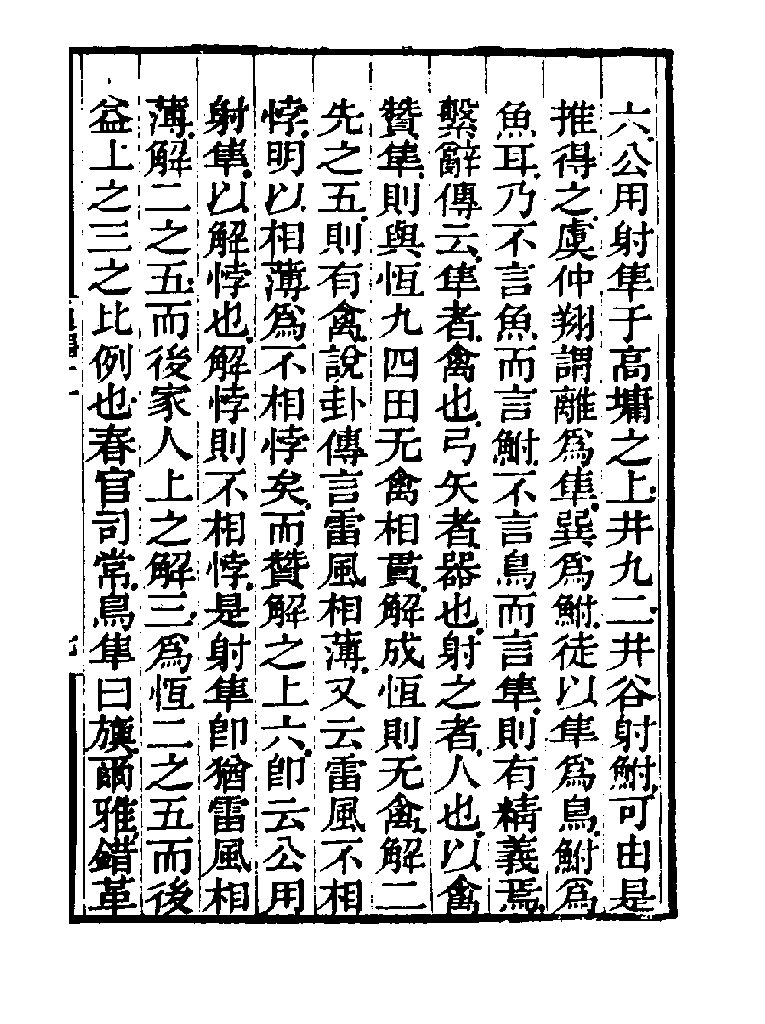 六公用射隼于高墉之上井九二井谷射鮒可由是
推得之虞仲翔謂離爲隼巽爲鮒徒以隼爲鳥鮒爲
魚耳乃不言魚而言鮒不言鳥而言隼則有精義焉
繫辭傳云隼者禽也弓矢者器也射之者人也以禽
贊隼則與恆九四田无禽相貫解成恆則无禽解二
先之五則有禽說卦傳言雷風相薄又云雷風不相
悖明以相薄爲不相悖矣而贊解之上六卽云公用
射隼以解悖也解悖則不相悖是射隼卽猶雷風相
薄解二之五而後家人上之解三爲恆二之五而後
益上之三之比例也春官司常鳥隼曰旟爾雅錯革